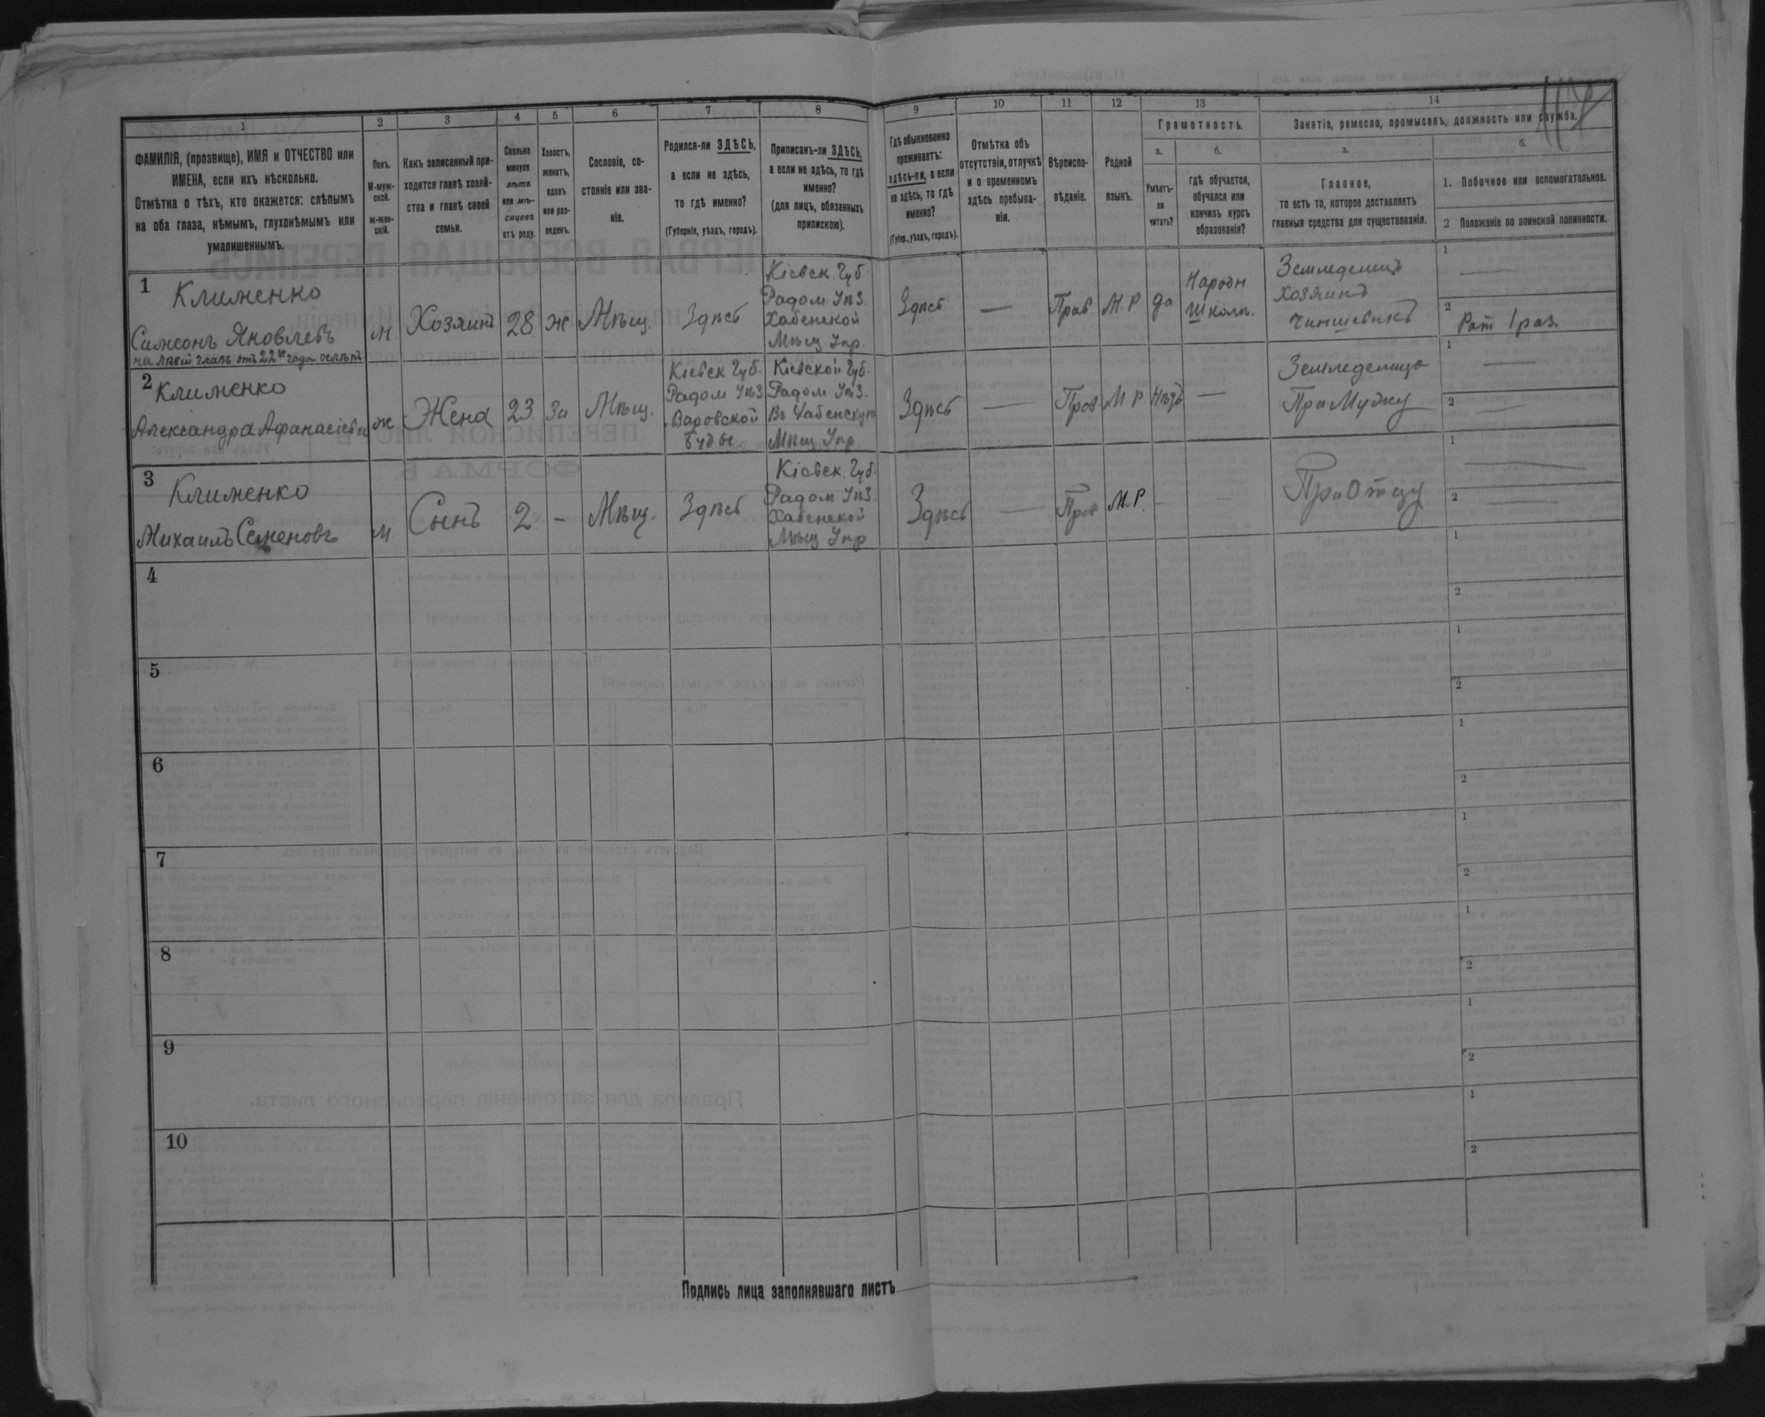 1
2
3
4
5
6
7
8
9
10
11
12
13
14
ФАМИЛІЯ, (прозвище), ИМЯ и ОТЧЕСТВО или
ИМЕНА, если ихъ нѣсколько.
Отмѣтка о тѣхъ, кто окажется: слѣпымъ
на оба глаза, нѣмымъ, глухонѣмымъ или
умалишеннымъ.
Полъ.
М-муж-
ской.
Ж-жен-
скій.
Какъ записанный при-
ходится главѣ хозяй-
ства и главѣ своей
семьи.
Сколько
минуло
лѣтъ
или мѣ-
сяцевъ
отъ роду.
Холостъ,
женатъ,
вдовъ
или раз-
веденъ.
Сословіе, со-
стояніе или зва-
ніе.
Родился-ли ЗДѢСЬ,
а если не здѣсь,
то гдѣ именно?
(Губернія, уѣздъ, городъ).
Приписанъ-ли ЗДѢСЬ,
а если не здѣсь, то гдѣ
именно?
(для лицъ, обязанныхъ
припискою).
Гдѣ обыкновенно
проживаетъ:
здѣсь-ли, а если
не здѣсь, то гдѣ
именно?
(Губер., уѣздъ, городъ).
Отмѣтка объ
отсутствіи, отлучкѣ
и о временномъ
здѣсь пребыва-
ніи.
Вѣроиспо-
вѣданіе.
Родной
языкъ.
Грамотность.
а.
б.
Умѣетъ-
ли
читать?
гдѣ обучается,
обучался или
кончилъ курсъ
образованія?
Занятіе, ремесло, промыселъ, должность или служба.
а.
б.
Главное,
то есть то, которое доставляетъ
главныя средства для существованія.
1. Побочное или вспомогательное.
2 Положеніе по воинской повинности.
1 Клименко
Симеонъ Яковлевъ
на лѣвій глазъ отъ 22го года ослѣпъ
м
Хозяинъ
28
ж
Мѣщ.
Здѣсь
Кіевск. Губ.
Радом Уѣз.
Хабенской
Мѣщ. Упр.
Здѣсь
—
Прав
М.Р
да
Народн
Школѣ.
Земледелецъ
Хозяинъ
Чиншевикъ
1 —
2 Рат 1 раз.
2 Клименко
Александра Афанасіевн
ж
Жена
23
За
Мѣщ.
Кіевск Губ.
Радом Уѣз
Варовской
Буды
Кіевской Губ.
Радом Уѣз.
Въ Хабенскую
Мѣщ. Упр.
Здѣсь
—
Прав
М Р
Нѣтъ
—
Земледелица
При Мужу
1 —
2 —
3 Клименко
Михаилъ Семеновъ
м
Сынъ
2
-
Мѣщ.
Здѣсь
Кіевск. Губ.
Радом Уѣз.
Хабенской
Мѣщ Упр
Здѣсь
—
Прав
М.Р.
-
-
При Отцу
1 —
2 —
4
1
2
5
1
2
6
1
2
7
1
2
8
1
2
9
1
2
10
1
2
Подпись лица заполнявшаго листъ